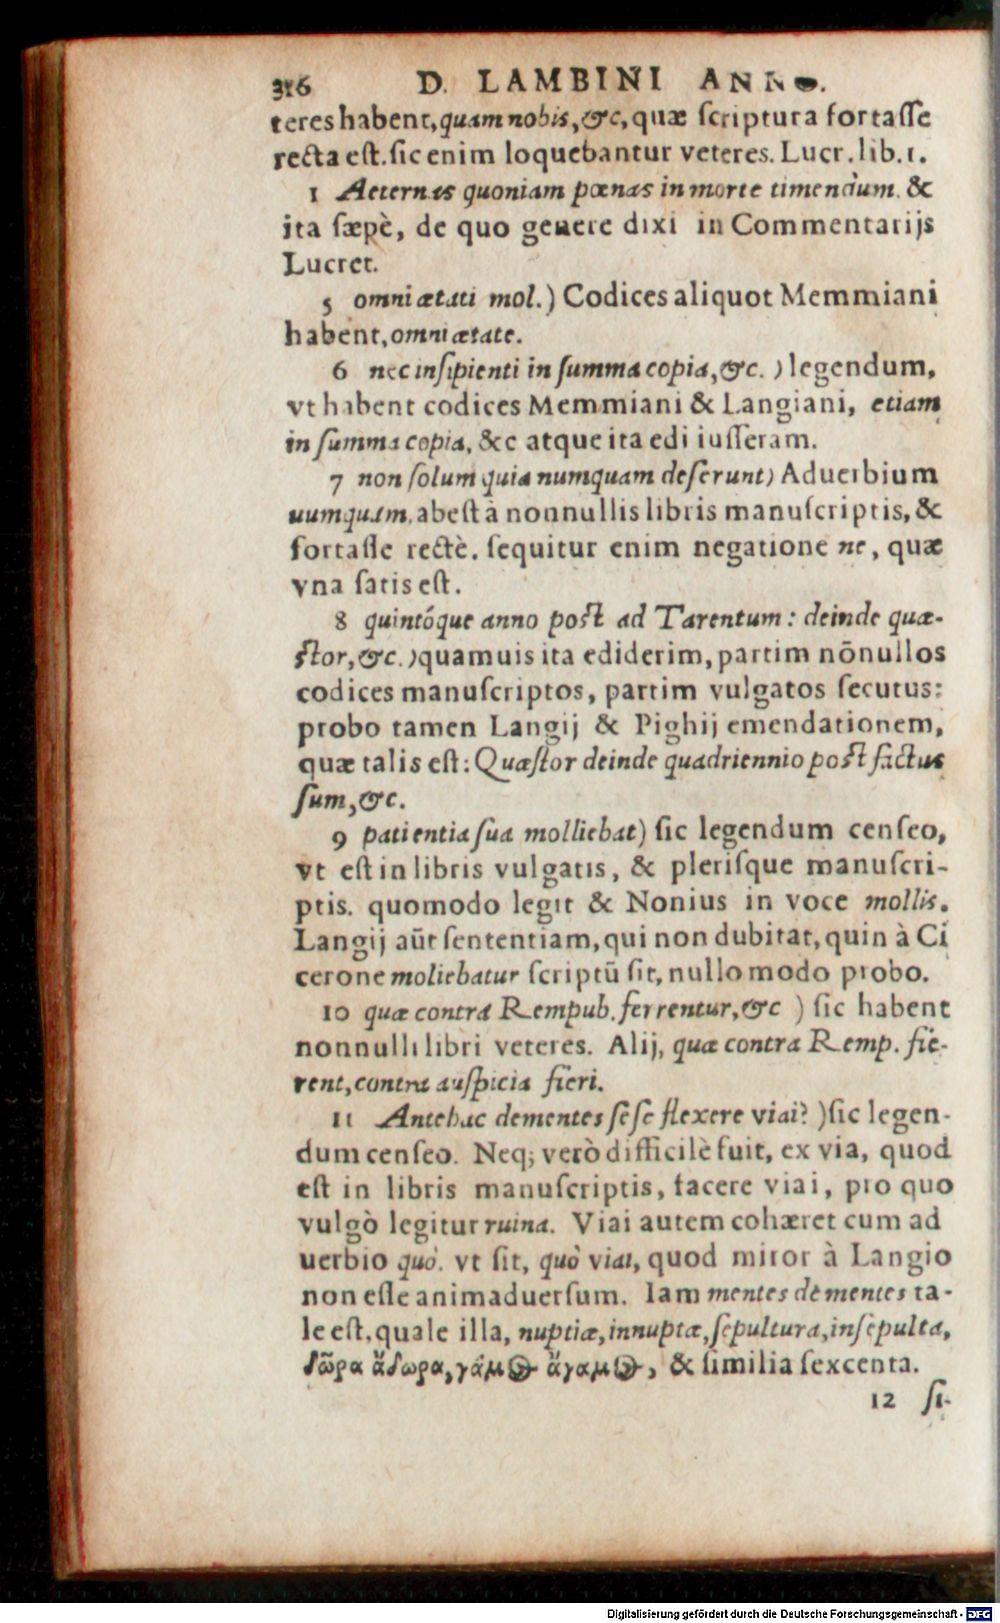 316 D. LAMBINI ANNO.
teres habent, quam nobis, &c, quæ scriptura fortasse
recta est. sic enim loquebantur veteres. Lucr. lib. 1.
1 Aeternas quoniam pœnas in morte timendum. &
ita sæpè, de quo genere dixi in Commentarijs
Lucret.
5 omni ætati mol.) Codices aliquot Memmiani
habent, omni ætate.
6 nec insipienti in summa copia, &c.) legendum,
vt habent codices Memmiani & Langiani, etiam
in summa copia, &c atque ita edi iusseram.
7 non solum quia numquam deserunt) Aduerbium
uumquam, abest à nonnullis libris manuscriptis, &
fortasse rectè. sequitur enim negatione ne, quæ
vna satis est.
8 quintóque anno post ad Tarentum: deinde quæ-
stor, &c.) quamuis ita ediderim, partim nōnullos
codices manuscriptos, partim vulgatos secutus:
probo tamen Langij & Pighij emendationem,
quæ talis est: Quæstor deinde quadriennio post factus
sum, &c.
9 patientia sua molliebat) sic legendum censeo,
vt est in libris vulgatis, & plerisque manuscri-
ptis. quomodo legit & Nonius in voce mollis.
Langij aūt sententiam, qui non dubitat, quin à Ci
cerone moliebatur scriptū sit, nullo modo probo.
10 quæ contra Rempub. ferrentur, &c ) sic habent
nonnulli libri veteres. Alij, quæ contra Remp. fie-
rent, contra auspicia fieri.
11 Antehac dementes sese flexere viai? ) sic legen-
dum censeo. Neq; verò difficilè fuit, ex via, quod
est in libris manuscriptis, facere viai, pro quo
vulgò legitur ruina. Viai autem cohæret cum ad
uerbio quò. vt sit, quò viai, quod miror à Langio
non esse animaduersum. Iam mentes dementes ta-
le est, quale illa, nuptiæ, innuptæ, sepultura, insepulta,
δῶρα ἄδωρα, γάμος ἄγαμος, & similia sexcenta.
12 si-
Digitalisierung gefördert durch die Deutsche Forschungsgemeinschaft - DFG